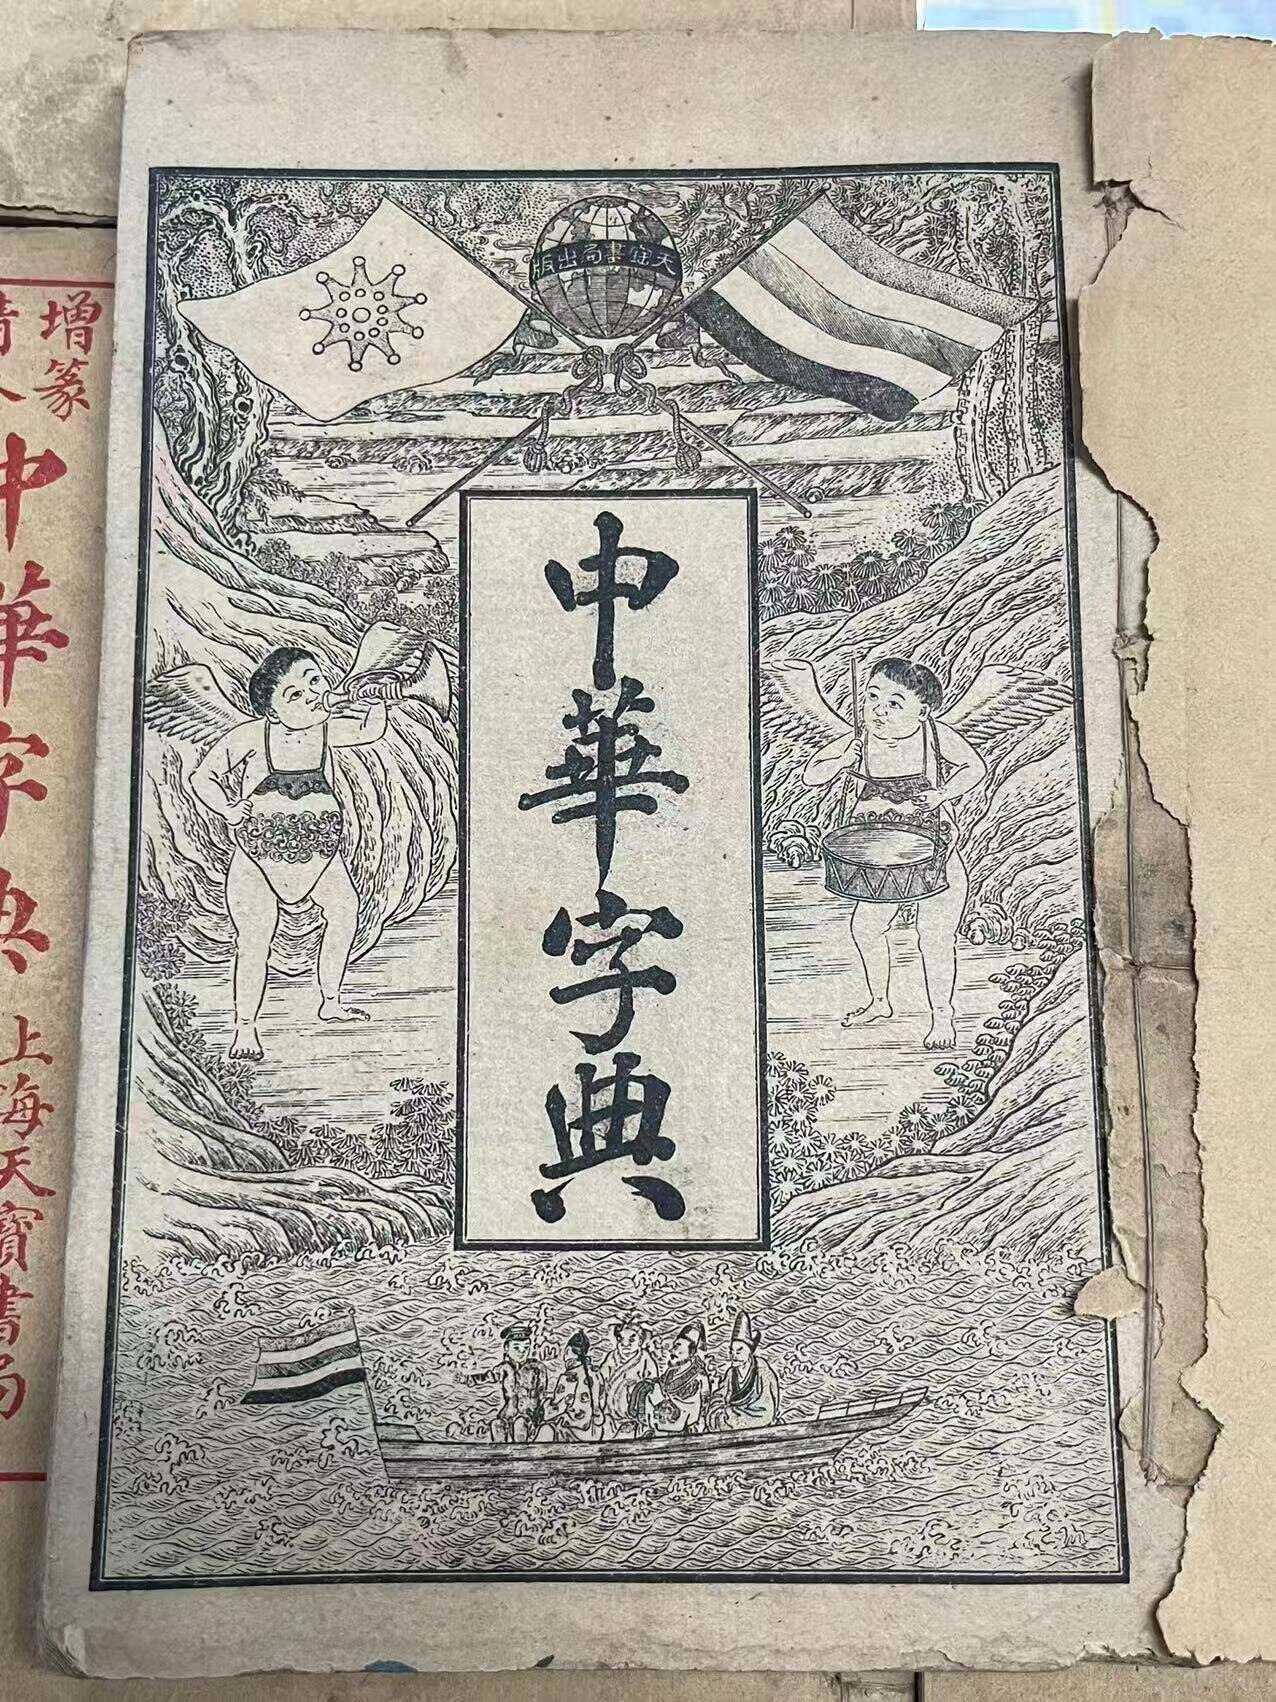 天宝書局出版
中華字典
增篆
中華字典
上海天寶書局